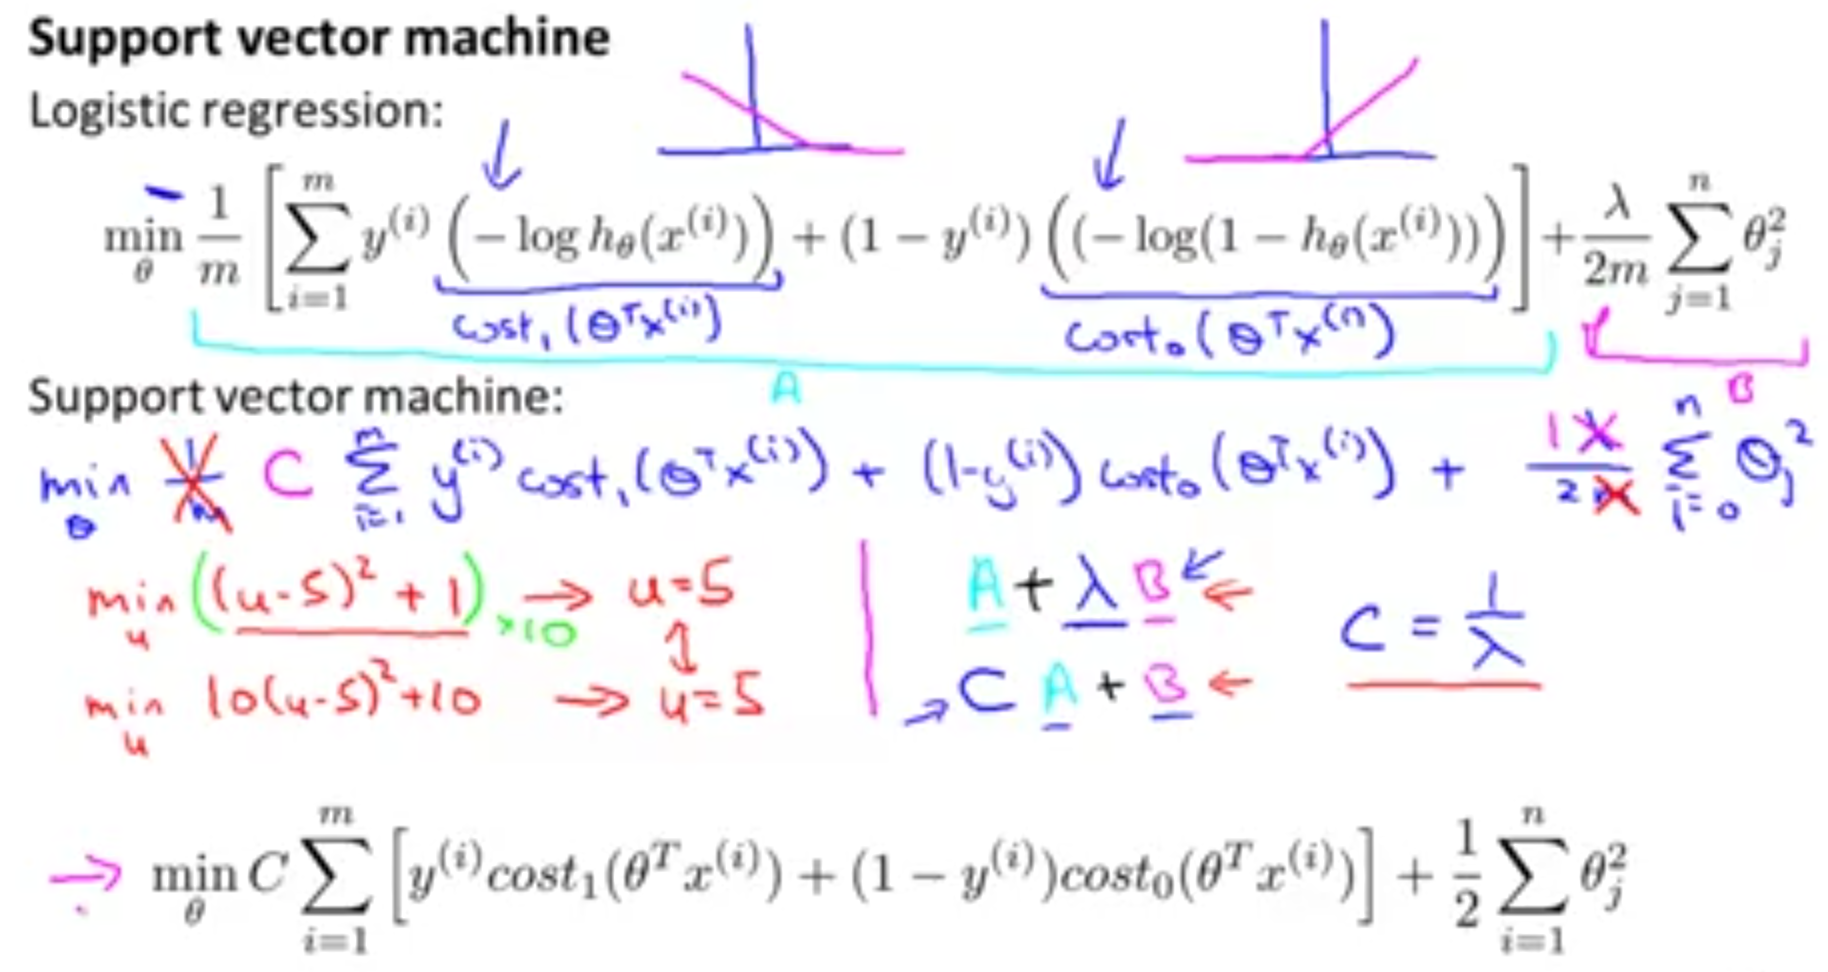 Support vector machine
Logistic regression:
min_θ 1/m [ Σ_{i=1}^{m} y^{(i)} ( − log h_θ(x^{(i)}) ) + (1 − y^{(i)}) ( (− log(1 − h_θ(x^{(i)}))) ) ] + λ/2m Σ_{j=1}^{n} θ_j^2
cost₁ (θᵀx^{(i)}) cost₀ (θᵀx^{(i)})
A B
Support vector machine:
min_θ 1/m C Σ_{i=1}^{m} y^{(i)} cost₁(θᵀx^{(i)}) + (1-y^{(i)}) cost₀(θᵀx^{(i)}) + 1 λ/2m Σ_{i=0}^{n} θ_j^2
min_u ((u-5)² + 1) ×10 → u=5
min_u 10(u-5)²+10 → u=5
A + λ B ←
→ C A + B ←
C = 1/λ
→ min_θ C Σ_{i=1}^{m} [ y^{(i)}cost₁(θᵀx^{(i)}) + (1 − y^{(i)})cost₀(θᵀx^{(i)}) ] + 1/2 Σ_{i=1}^{n} θ_j^2